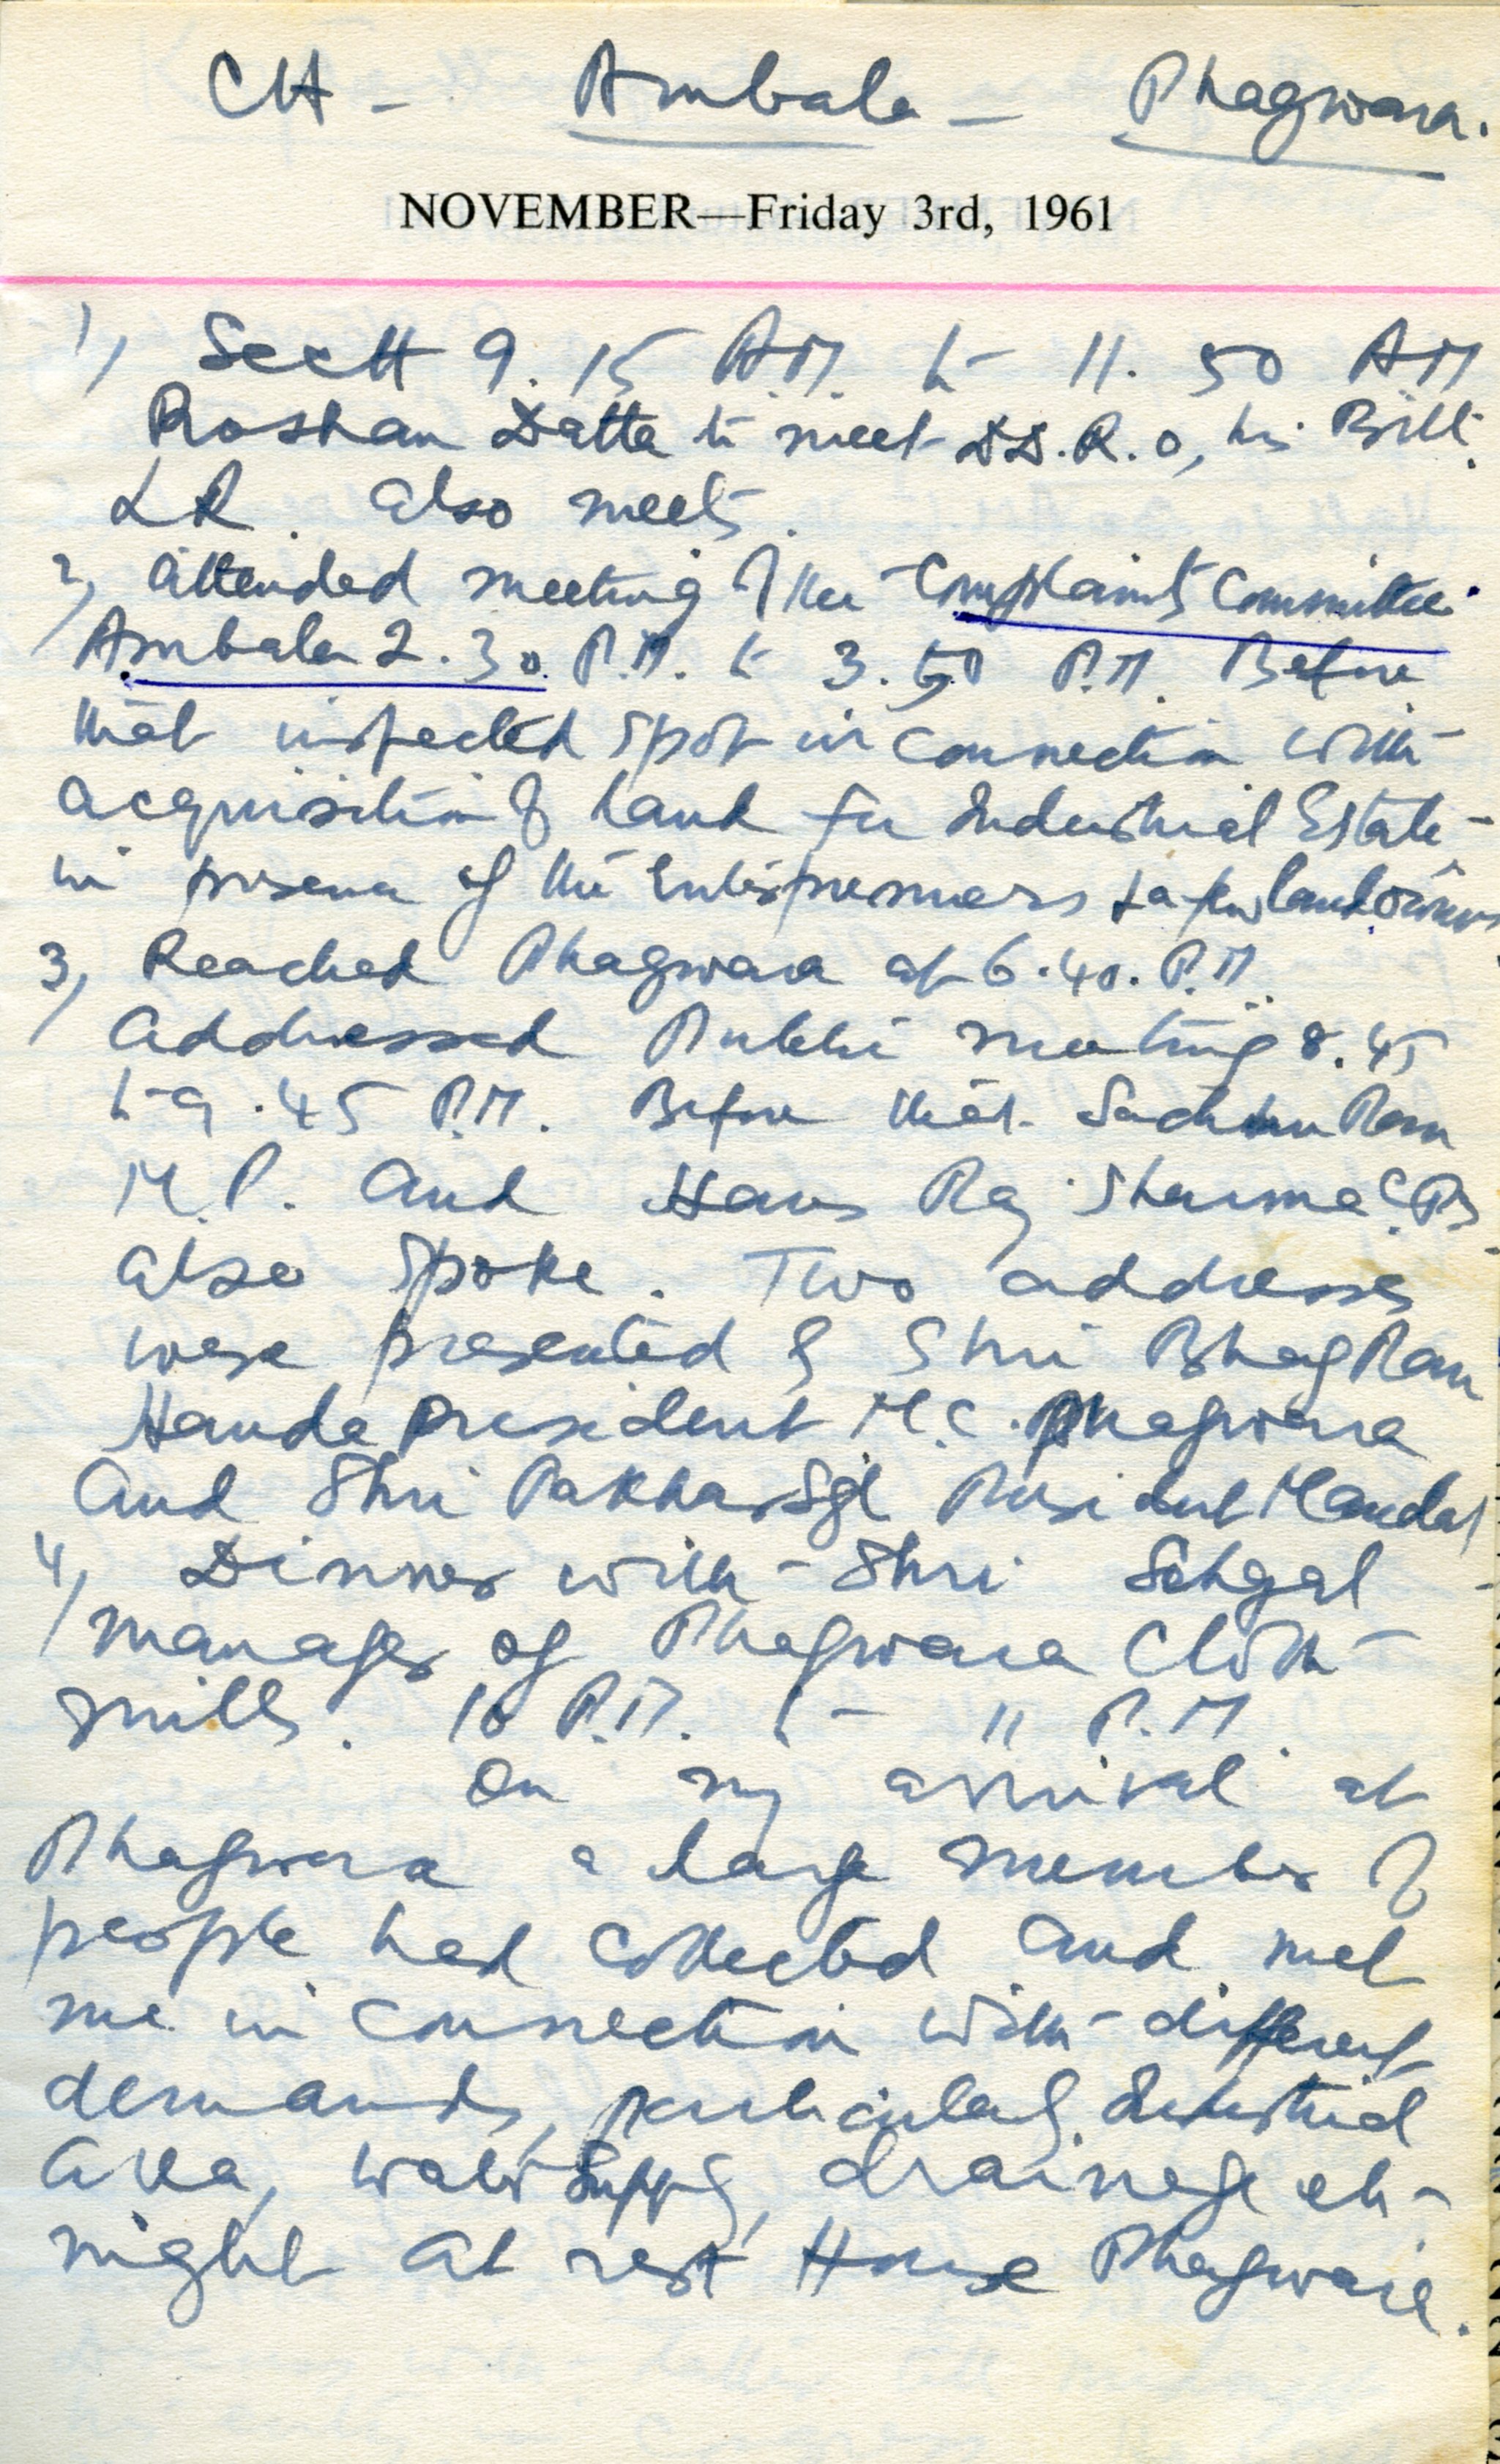 CH - Ambala - Phagwara.
NOVEMBER—Friday 3rd, 1961
1) Sectt 9.15 A.M. to 11.50 AM
Roshan Datta to meet D.R.O,
L.R. also meets.
2) Attended meeting of the Complaints Committee
Ambala 2.30 P.M. to 3.50 P.M. Before
that inspected spot in connection with
acquisition of land for Industrial Estate
in presence of the Enterpreneurs & a few landowners
3) Reached Phagwara at 6.40. P.M.
Addressed Public meeting 8.45
to 9.45 P.M. Before that Sadhu Ram
M.P. and Hans Raj Sharma C.P.S
also spoke. Two addresses
were presented by Shri Bhag Ram
Handa President M.C. Phagwara
and Shri Pakhar Sgh President Mandal
4) Dinner with Shri Sehgal
Manager of Phagwara Cloth
mills. 10 P.M. to 11 P.M.
On my arrival at
Phagwara a large number of
people had collected and met
me in connection with different
demands, particularly Industrial
area, water supply, drainage etc
night at rest House Phagwara.